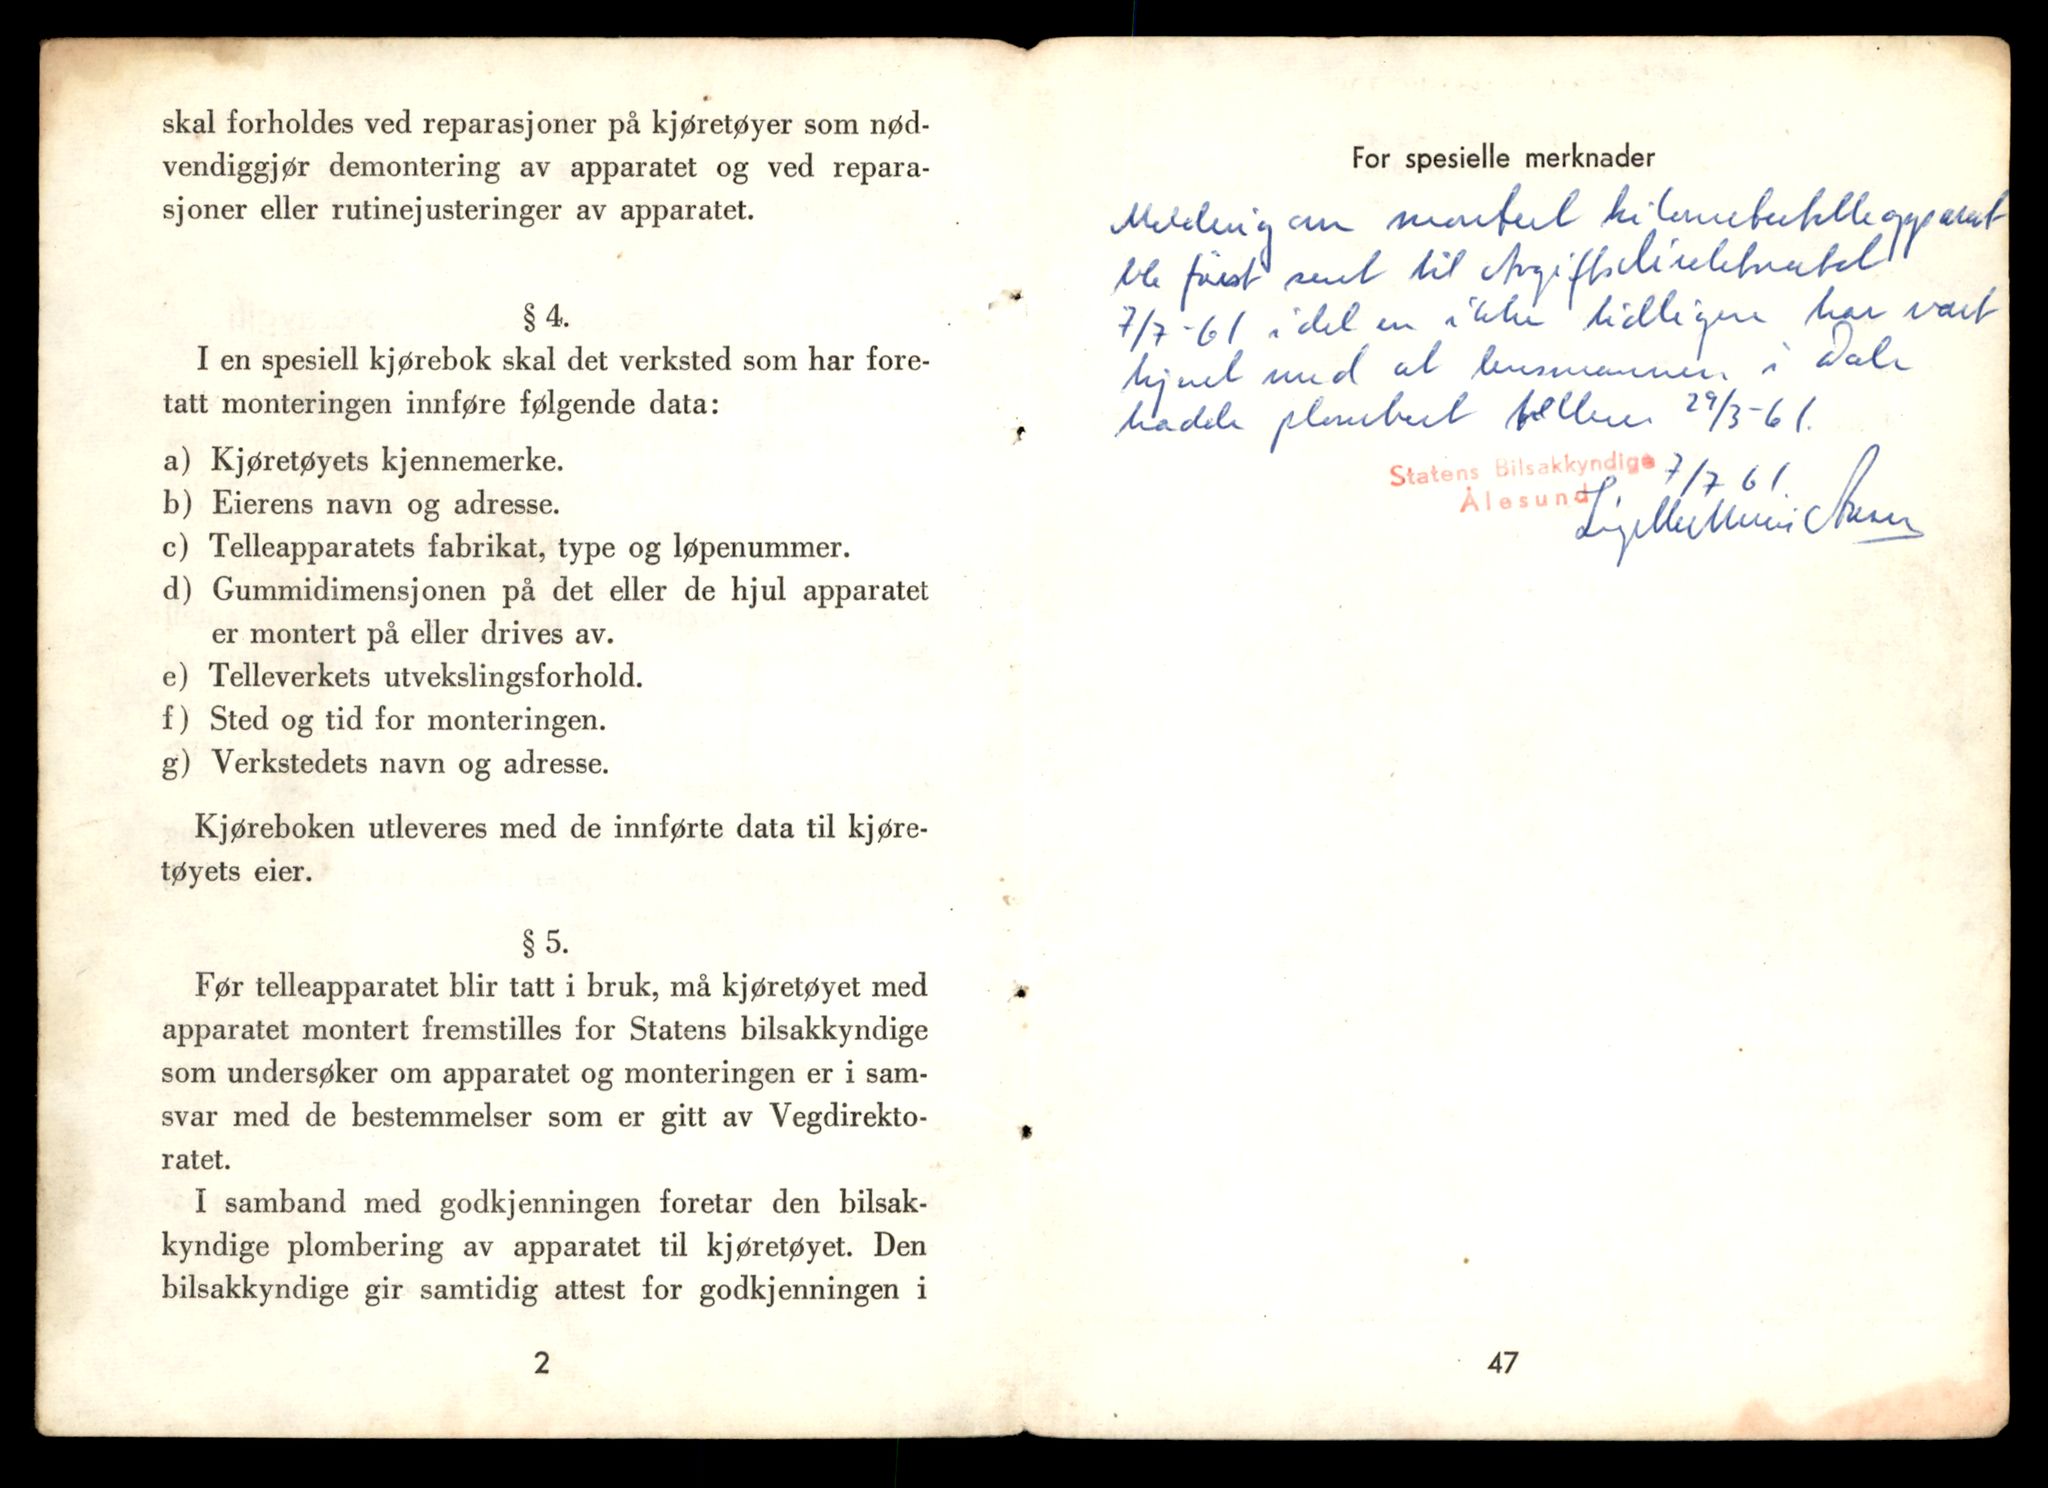 skal forholdes ved reparasjoner på kjøretøyer som nød-
vendiggjør demontering av apparatet og ved repara-
sjoner eller rutinejusteringer av apparatet.
§ 4.
I en spesiell kjørebok skal det verksted som har fore-
tatt monteringen innføre følgende data:
a) Kjøretøyets kjennemerke.
b) Eierens navn og adresse.
c) Telleapparatets fabrikat, type og løpenummer.
d) Gummidimensjonen på det eller de hjul apparatet
er montert på eller drives av.
e) Telleverkets utvekslingsforhold.
f) Sted og tid for monteringen.
g) Verkstedets navn og adresse.
Kjøreboken utleveres med de innførte data til kjøre-
tøyets eier.
§ 5.
Før telleapparatet blir tatt i bruk, må kjøretøyet med
apparatet montert fremstilles for Statens bilsakkyndige
som undersøker om apparatet og monteringen er i sam-
svar med de bestemmelser som er gitt av Vegdirekto-
ratet.
I samband med godkjenningen foretar den bilsak-
kyndige plombering av apparatet til kjøretøyet. Den
bilsakkyndige gir samtidig attest for godkjenningen i
2
For spesielle merknader
Melding om montert kilometertelleapparat
ble først sent til Avgiftsdirektoratet
7/7-61 idet en ikke tidligere har vært
kjent med at lensmannen i Dale
hadde plombert telleren 29/3-61.
Statens Bilsakkyndige 7/7 61.
Ålesund
47